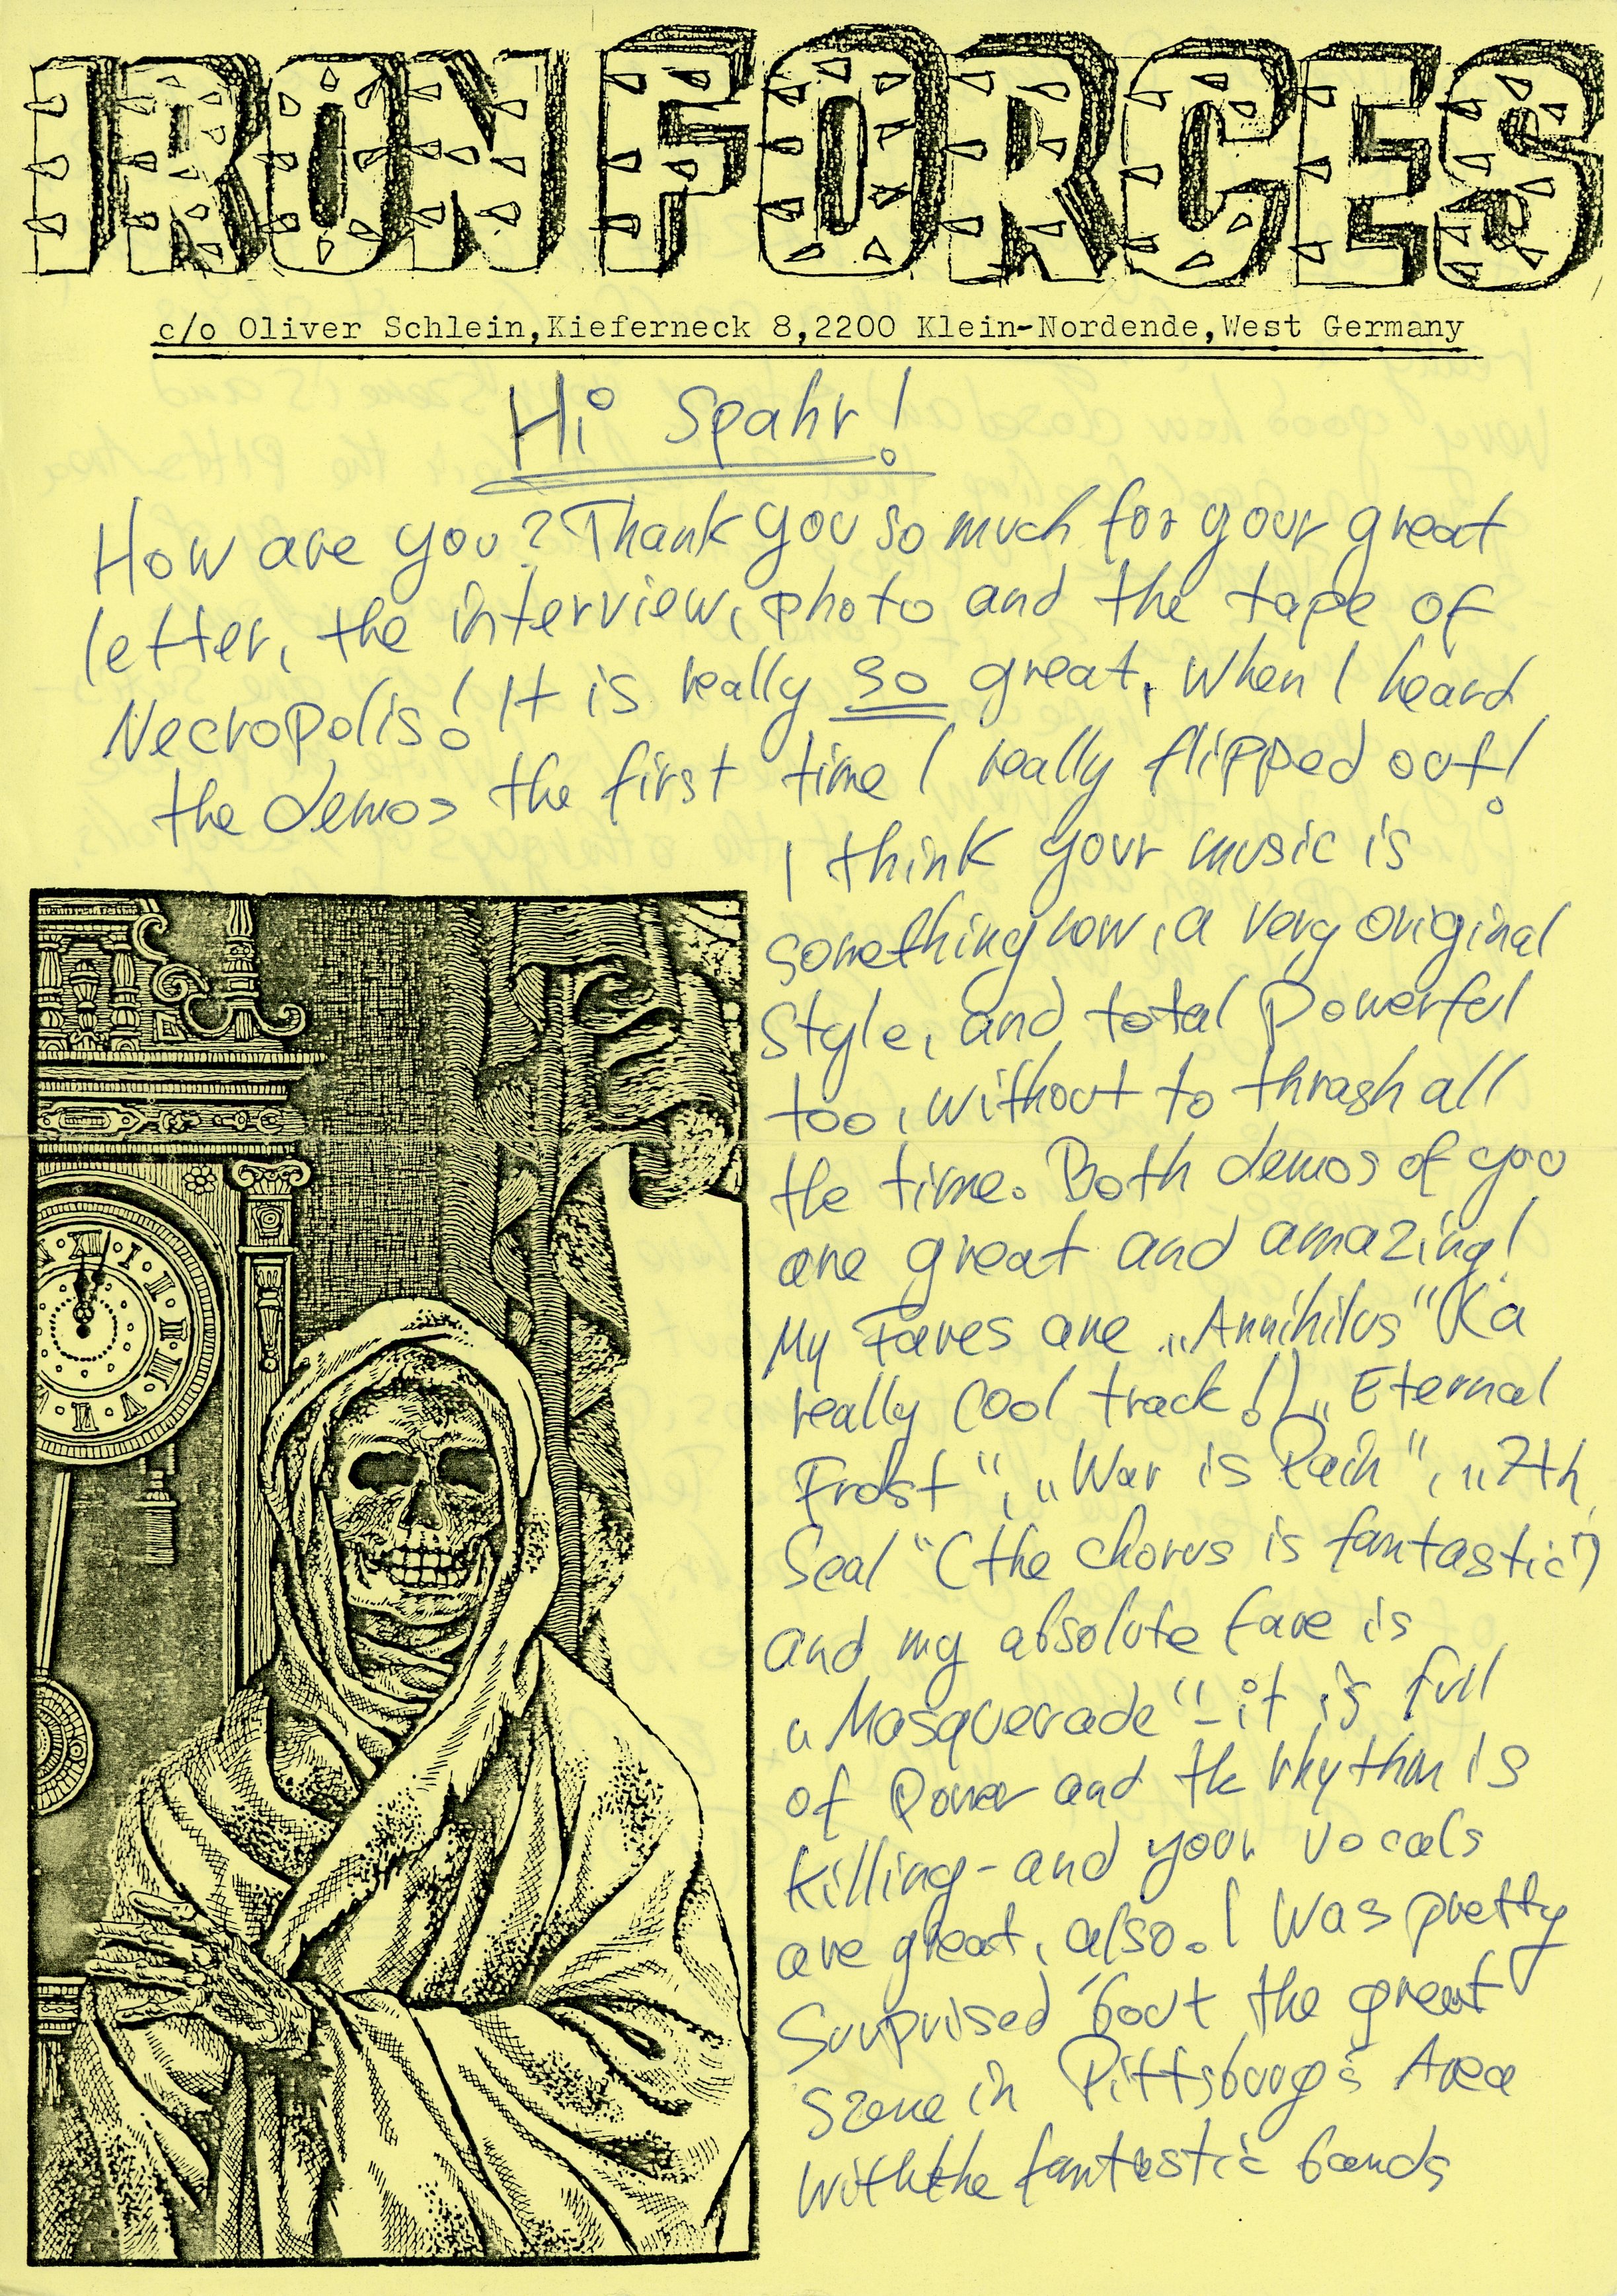 IRON FORCES
c/o Oliver Schlein,Kieferneck 8,2200 Klein-Nordende,West Germany
Hi Spahr!
How are you? Thank you so much for your great
letter, the interview, photo and the tape of
Necropolis! It is really so great, when I heard
the demos the first time I really flipped out!
I think your music is
something new, a very original
Style, and total powerful
too, without to thrash all
the time. Both demos of you
are great and amazing!
My Faves are „Annihilus“ (a
really cool track!), „Eternal
Frost“, „War is Pain“, „7th
Seal“ (the chorus is fantastic!)
and my absolute fave is
„Masquerade“ - it is full
of Power and the rhythm is
killing - and your vocals
are great, also. I was pretty
Surprised 'bout the great
Szene in Pittsburg's Area
with the fantastic bands
XII I II III IIII V VI